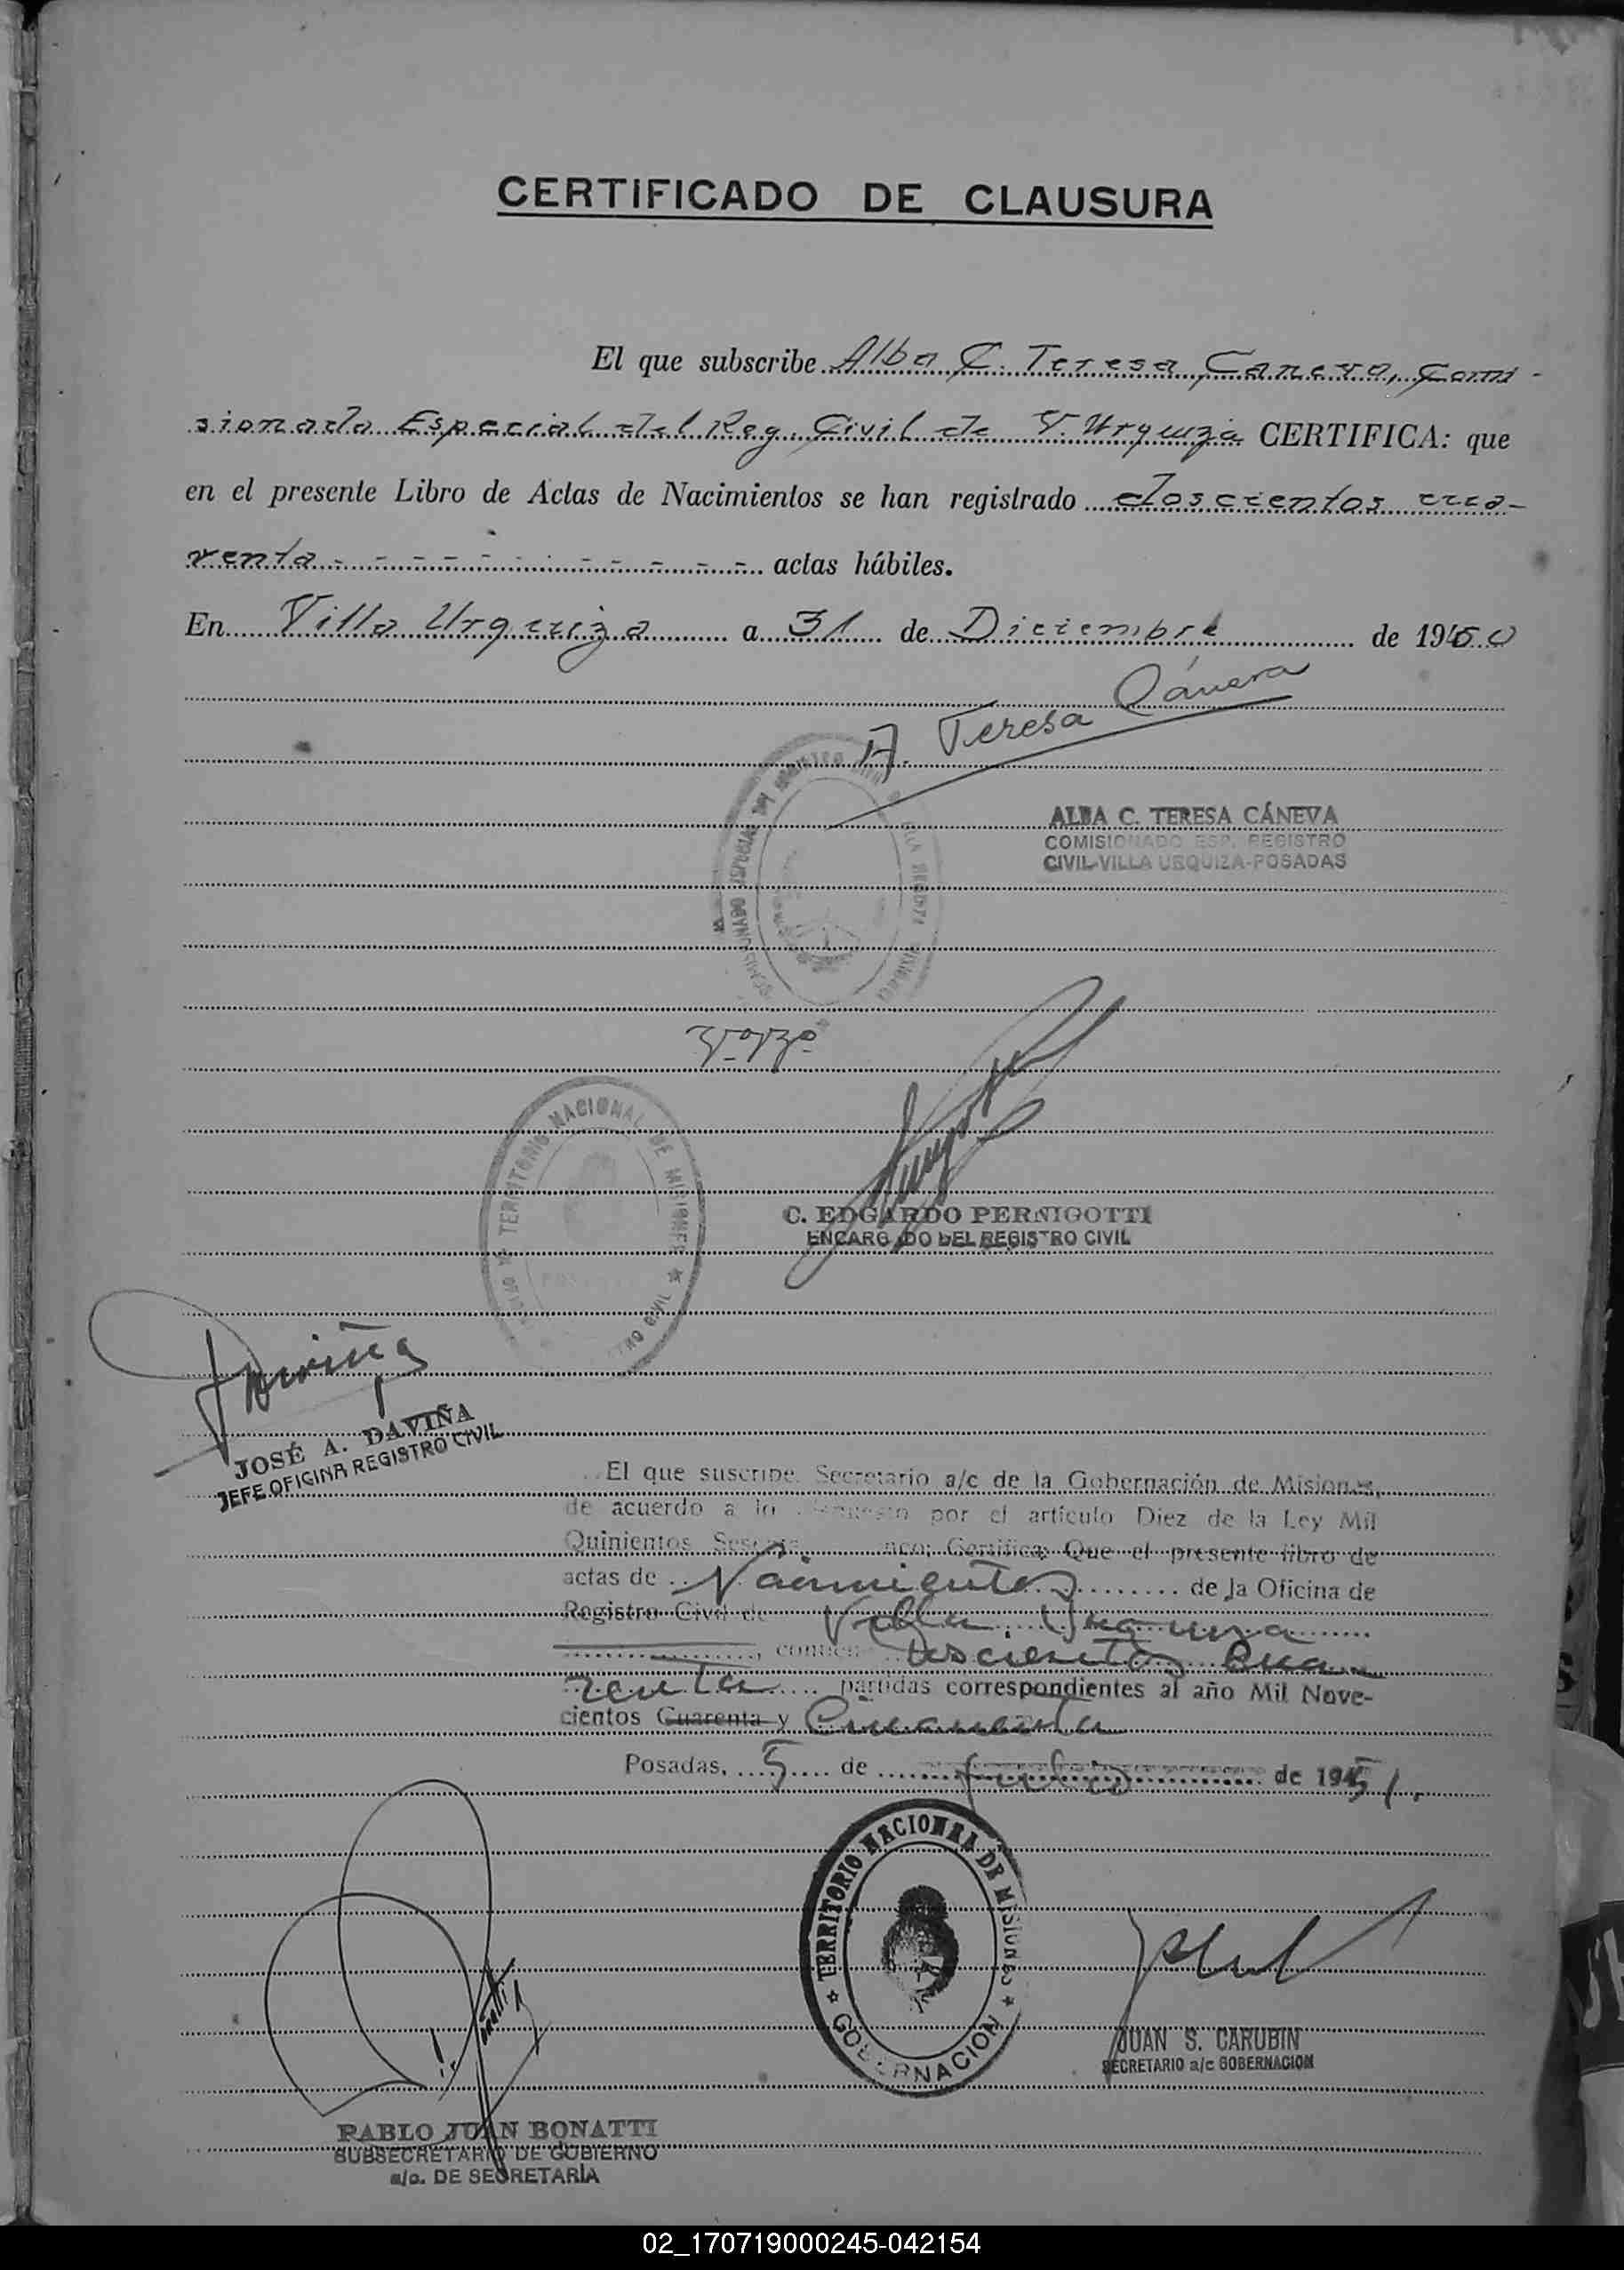 CERTIFICADO DE CLAUSURA
El que subscribe Alba C. Teresa Caneva, Comi-
sionado Especial del Reg. Civil de V. Urquiza CERTIFICA: que
en el presente Libro de Actas de Nacimientos se han registrado doscientos cua-
renta actas hábiles.
En Villa Urquiza a 31 de Diciembre de 1950
A. Teresa Cáneva
ALBA C. TERESA CÁNEVA
COMISIONADO ESP. REGISTRO
CIVIL-VILLA URQUIZA-POSADAS
TERRITORIO NACIONAL DE MISIONES
C. EDGARDO PERNIGOTTI
ENCARGADO DEL REGISTRO CIVIL
Daviña
JOSÉ A. DAVIÑA
JEFE OFICINA REGISTRO CIVIL
El que suscribe Secretario a/c de la Gobernación de Misiones,
de acuerdo a lo por el artículo Diez de la Ley Mil
Quinientos Certifica: Que el presente libro de
actas de Nacimientos de la Oficina de
Registro Civil de Villa Urquiza
, contiene Doscientos Cua
renta partidas correspondientes al año Mil Nove-
cientos Cuarenta y Cincuenta
Posadas, 5 de Julio de 1951.
TERRITORIO NACIONAL DE MISIONES
GOBERNACION
JUAN S. CARUBIN
SECRETARIO a/c GOBERNACION
PABLO JUAN BONATTI
SUBSECRETARIO DE GOBIERNO
a/c. DE SECRETARÍA
02_170719000245-042154